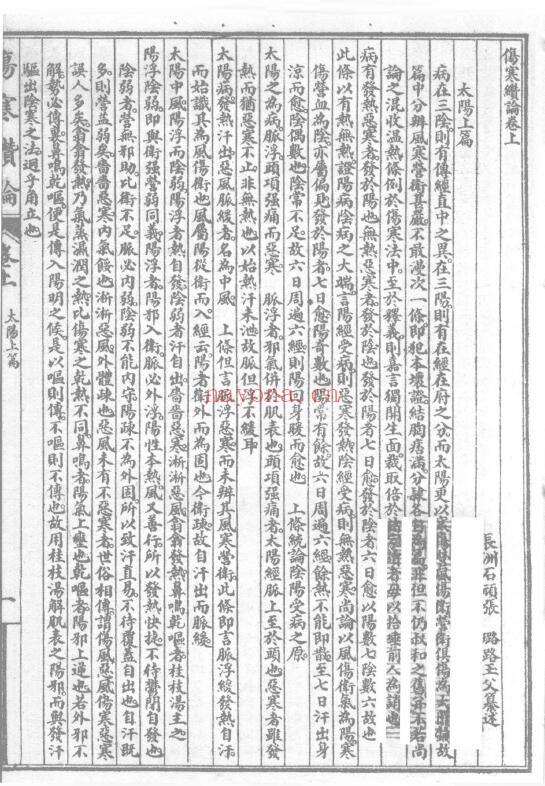 傷寒纘論卷上
長洲石頑張 璐路玉父纂述
太陽上篇
病在三陰則有傳經直中之異在三陽則有在經在府之分而太陽更以
篇中分辨風寒營衛甚嚴不敢漫次一條即犯本壞證結胸痞滿分隸各
論之混收溫熱條例於傷寒法中至於釋義則嘉言獨開生面裁取倍於
病有發熱惡寒者發於陽也無熱惡寒者發於陰也發於陽者七日愈發於陰者六日愈以陽數七陰數六故也
此條以有熱無熱證陽病陰病之大端言陽經受病則惡寒發熱陰經受病則無熱惡寒尚論以風傷衛氣為陽寒
傷營血為陰亦屬偏見發於陽者七日愈陽奇數也陽常有餘故六日周遍六經餘熱不能即散至七日汗出身
涼而愈陰偶數也陰常不足故六日周遍六經則陽回身暖而愈也 上條統論陰陽受病之原
太陽之為病脈浮頭項強痛而惡寒 脈浮者邪氣併於肌表也頭項強痛者太陽經脈上至於頭也惡寒者雖發
熱而猶惡寒不止非無熱也以始熱汗未泄故脈但浮不緩耳
太陽病發熱汗出惡風脈緩者名為中風 上條但言脈浮惡寒而未辨其風寒營衛此條即言脈浮緩發熱自汗
而始識其為風傷衛也風屬陽從衛而入經云陽者衛外而為固也今衛疎故自汗出而脈緩
太陽中風陽浮而陰弱陽浮者熱自發陰弱者汗自出嗇嗇惡寒淅淅惡風翕翕發熱鼻鳴乾嘔者桂枝湯主之
陽浮陰弱即與衛強營弱同義陽浮者陽邪入衛脈必外浮陽性本熱風又善行所以發熱快捷不待鬱閉自發也
陰弱者營無邪助比衛不足脈必內弱陰弱不能內守陽疎不為外固所以致汗直易不待覆蓋自出也自汗既
多則營益弱矣嗇嗇惡寒內氣餒也淅淅惡風外體疎也惡風未有不惡寒者世俗相傳謂傷風惡風傷寒惡寒
誤人多矣翕翕發熱乃氣蒸濕潤之熱比傷寒之乾熱不同鼻鳴者陽氣上壅也乾嘔者陽邪上逆也若外邪不
解勢必傳裏鼻鳴乾嘔便是傳入陽明之候是以嘔則傳不嘔則不傳也故用桂枝湯解肌表之陽邪而與發汗
驅出陰寒之法迥乎角立也
傷寒纘論 卷上 太陽上篇 一
navona.cn